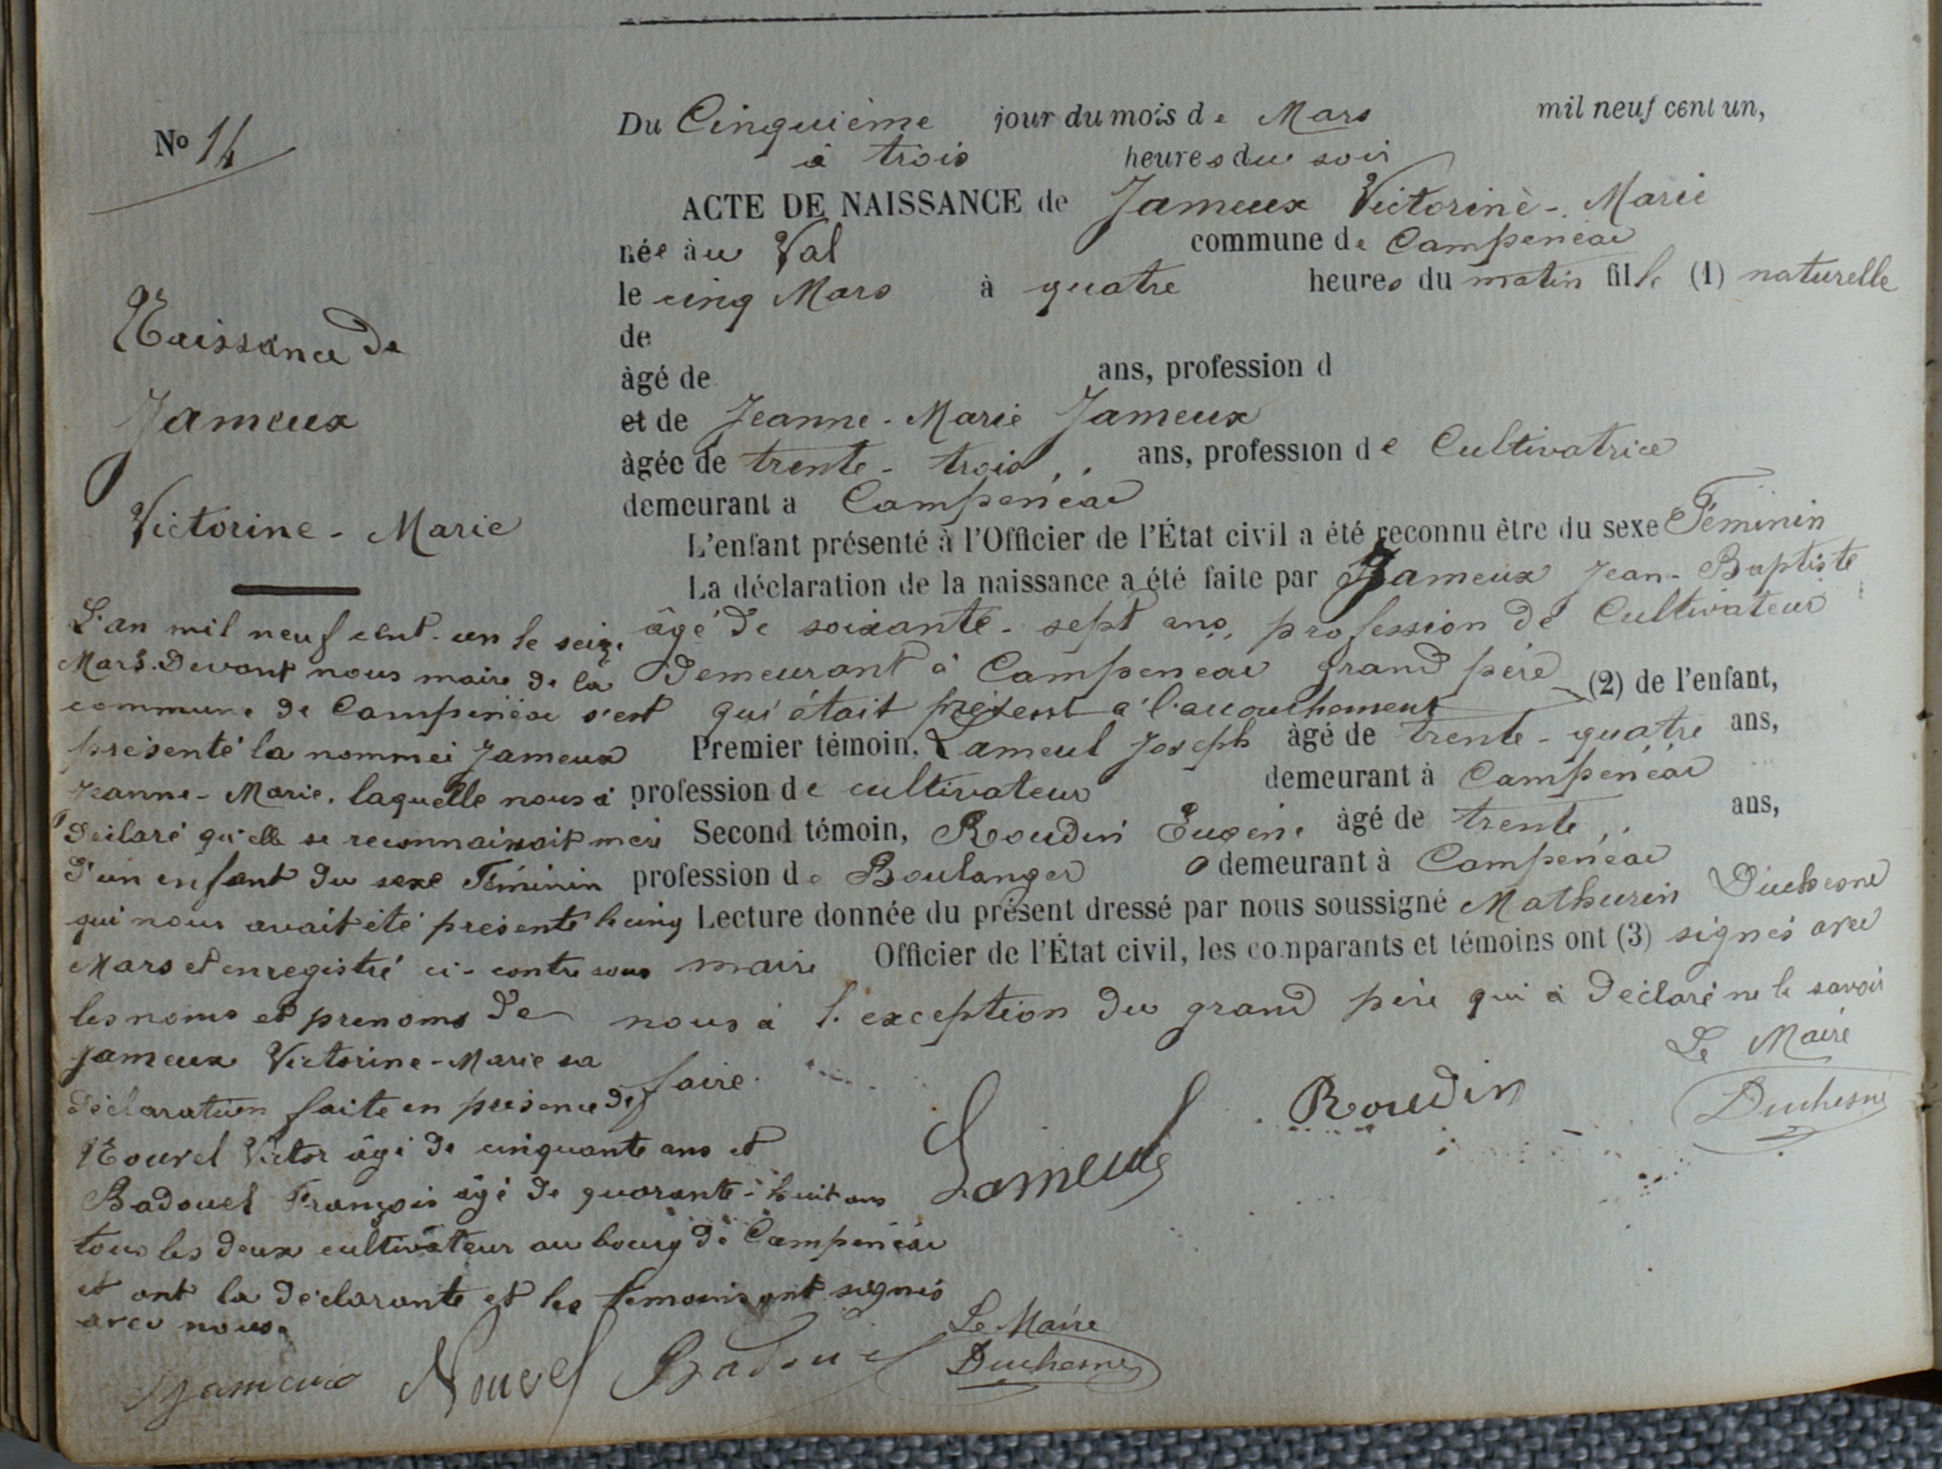 Nº 14
Naissance de
Jameux
Victorine - Marie
Du Cinquième jour du mois de Mars mil neuf cent un,
à trois heures du soir
ACTE DE NAISSANCE de Jameux Victorine - Marie
née àu Val commune de Campénéac
le cinq Mars à quatre heures du matin fille (1) naturelle
de
âgé de ans, profession d
et de Jeanne - Marie Jameux
âgée de trente - trois ans, profession de Cultivatrice
demeurant à Campénéac
L'enfant présenté à l'Officier de l'État civil a été reconnu être du sexe Féminin
La déclaration de la naissance a été faite par Jameux Jean - Baptiste
âgé de soixante - sept ans, profession de Cultivateur
demeurant à Campénéac grand père (2) de l'enfant,
qui était présent à l'accouchement
Premier témoin, Lameul Joseph âgé de trente - quatre ans,
profession de cultivateur demeurant à Campénéac
Second témoin, Roudin Eugène âgé de trente ans,
profession de Boulanger demeurant à Campénéac
Lecture donnée du présent dressé par nous soussigné Mathurin Duchesne
maire Officier de l'État civil, les comparants et témoins ont (3) signés avec
nous à l'exception du grand père qui à déclaré ne le savoir
faire.
Le Maire
Lameul Roudin Duchesne
L'an mil neuf cent - un le seize
Mars. Devant nous maire de la
commune de Campénéac s'est
présenté la nommée Jameux
Jeanne - Marie, laquelle nous à
déclaré qu'elle se reconnaissait mère
d'un enfant du sexe Féminin
qui nous avait été présenté le cinq
Mars et enregistré ci - contre sous
les noms et prenoms de
Jameux Victorine - Marie sa
déclaration faite en présence de
Nouvel Victor âgé de cinquante ans et
Badouel François âgé de quarante - huit ans
tous les deux cultivateur au bourg de Campénéac
et ont la déclarante et les témoins ont signés
avec nous.
Le Maire
Jameux Nouvel Badouel Duchesne